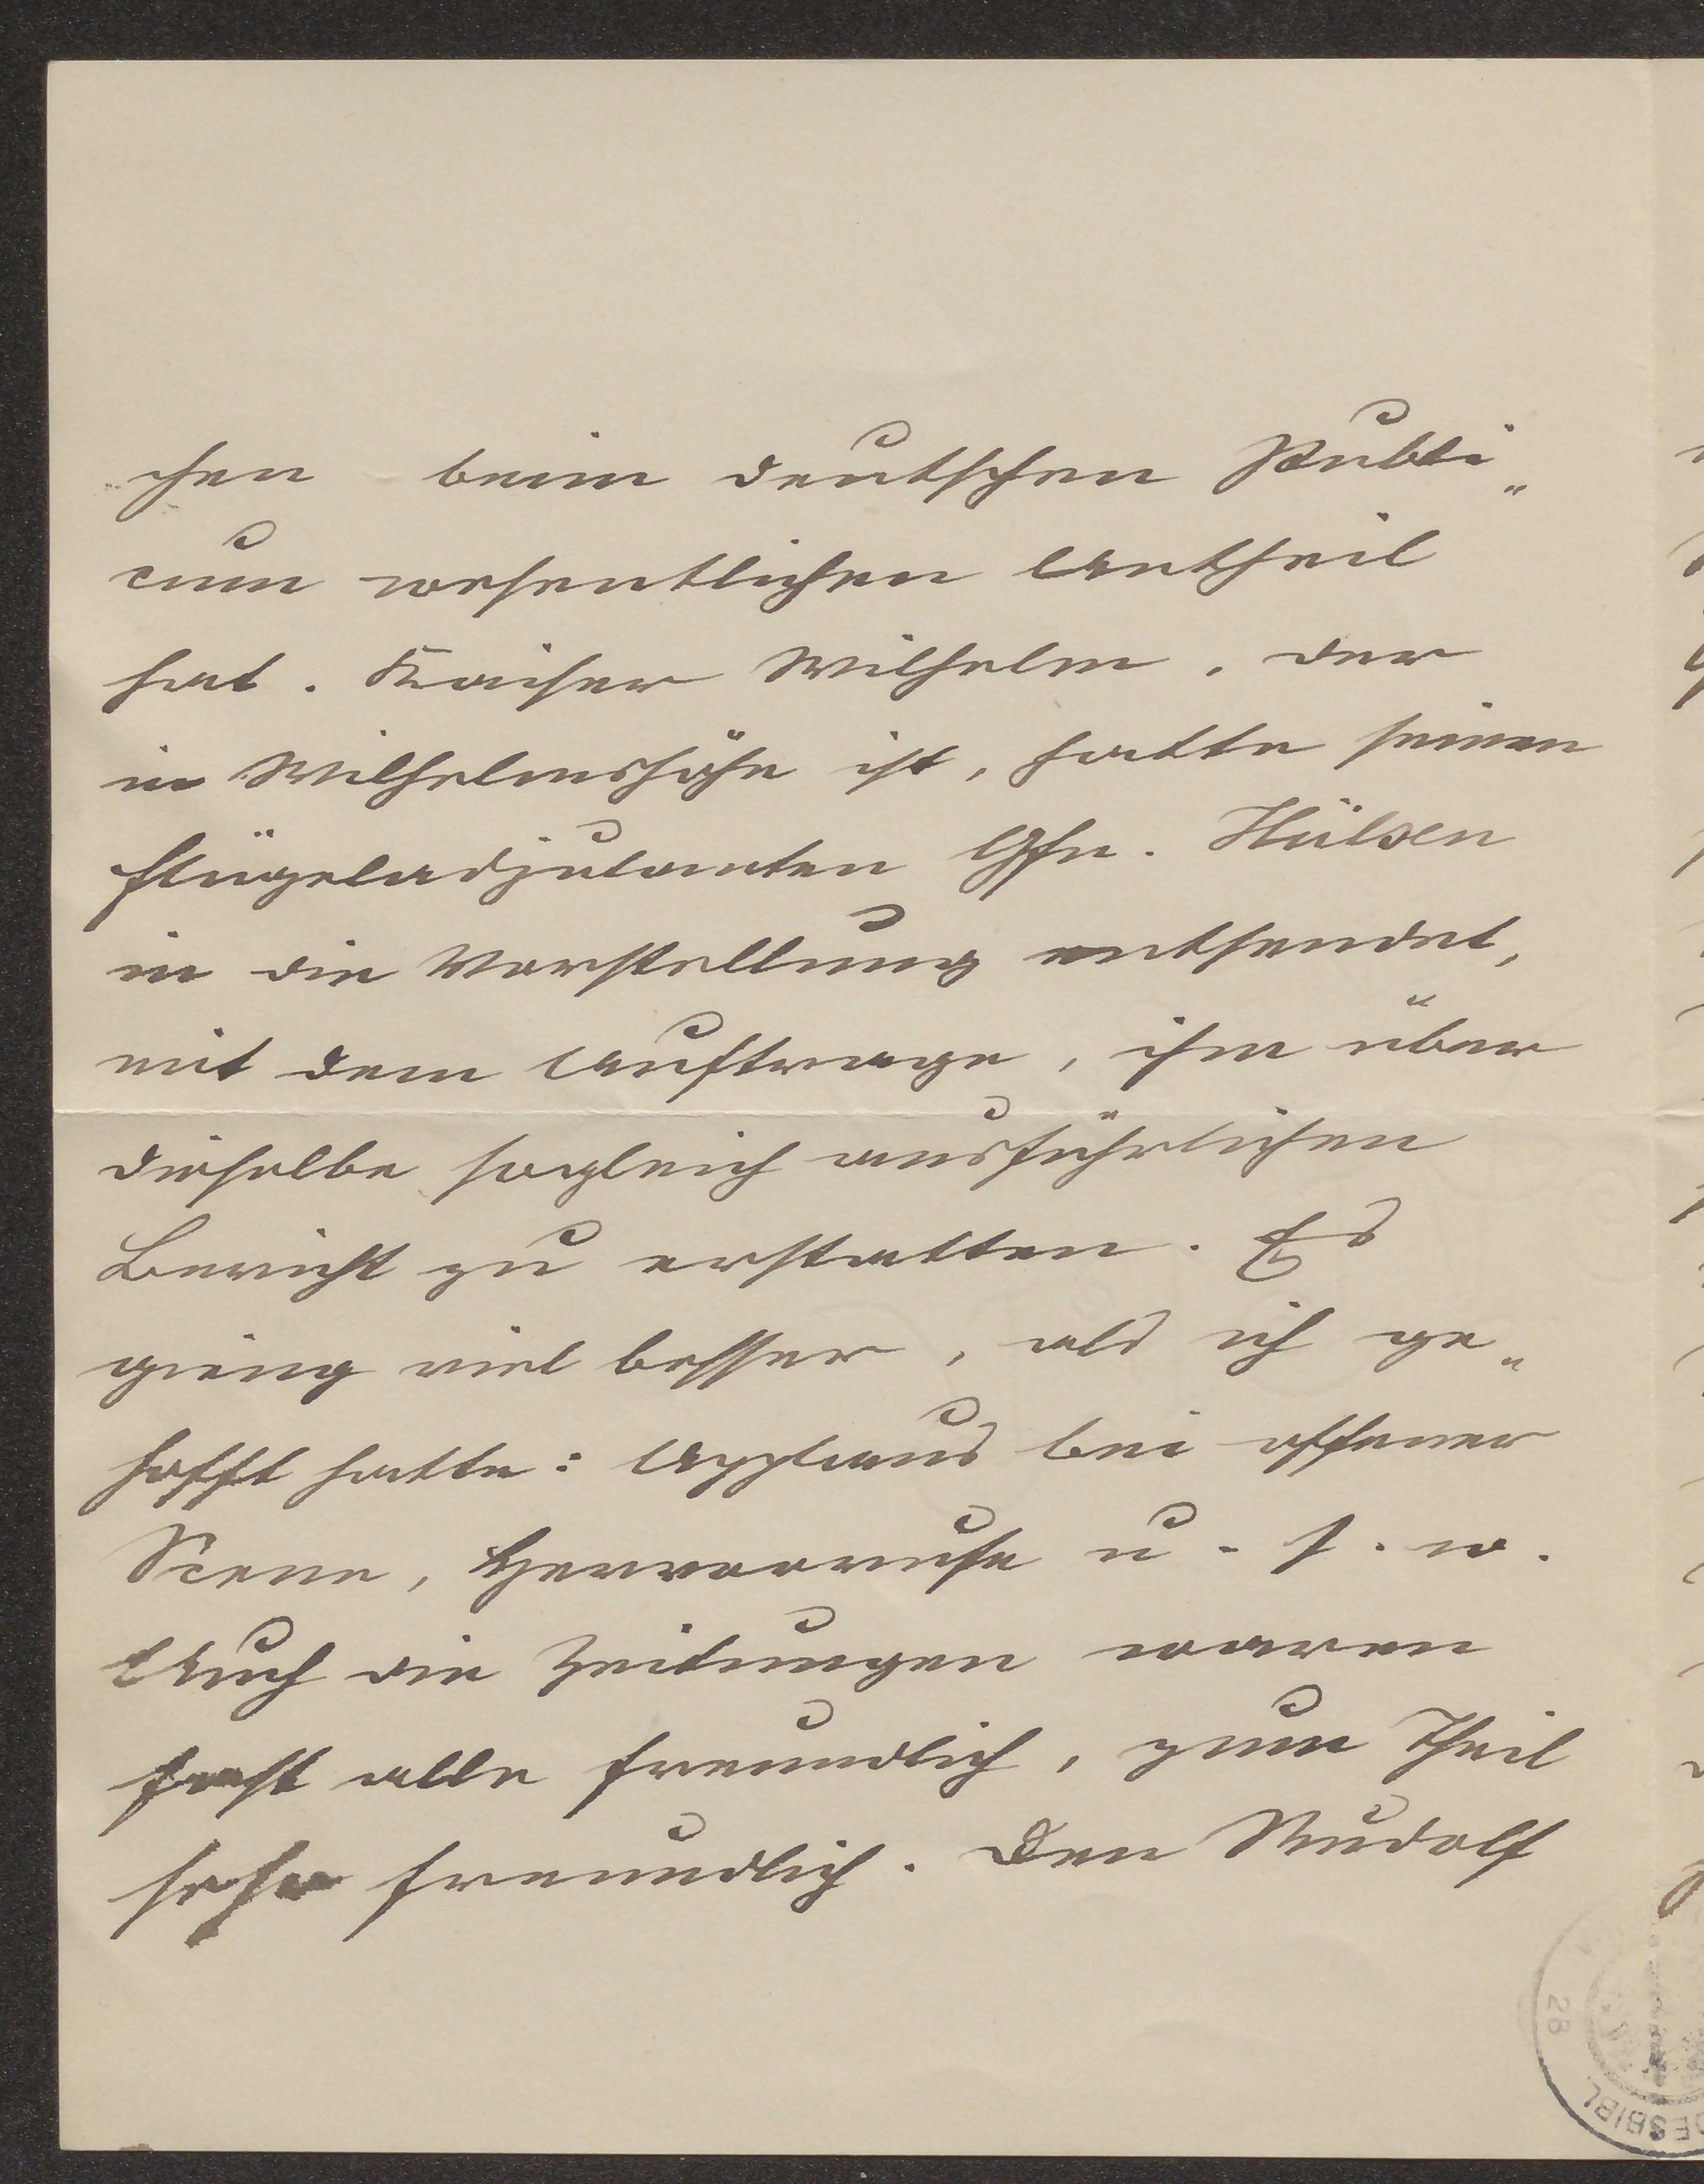 chen beim deutschen Publi„
cum wesentlichen Antheil
hat. Kaiser Wilhelm, der
in Wilhelmshöhe ist, hatte seinen
Flügeladjutanten Gfn. Hülsen
in die Vorstellung entsendet,
mit dem Auftrage, ihm über
dieselbe sogleich ausführlichen
Bericht zu erstatten. Es
gieng viel besser, als ich ge„
hofft hatte: Applaus bei offener
Scene, Hervorrufe u. s. w.
Auch die Zeitungen waren
fast alle freundlich, zum Theil
sehr freundlich. Den Rudolf
28
ESBIBL.